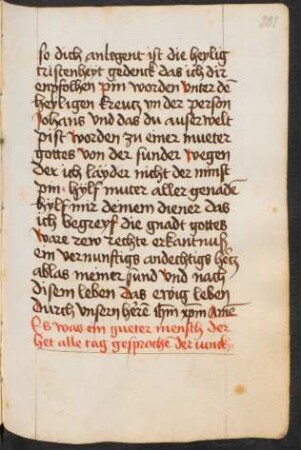 281
so dich anligent ist die heylig
cristenheyt gedenck das ich dir
enpfolhen pin worden unter dē
heyligen kreutz yn der person
Johans und das du auserwelt
pist worden zu einer mueter
gottes von der sunder wegen
der ich layder nicht der minst
pin · hylf muter aller genadē
hylf mir deinem diener das
ich begreyf die gnadt gottes
ware rew rechte erkantnuß
ein vernunftigs andechtigs hertz
ablas meiner sund und nach
disem leben das ewig leben
durch unsern here ihm xpm Amē
Es was ein gueter mensch der
het alle tag gesproche der iunck